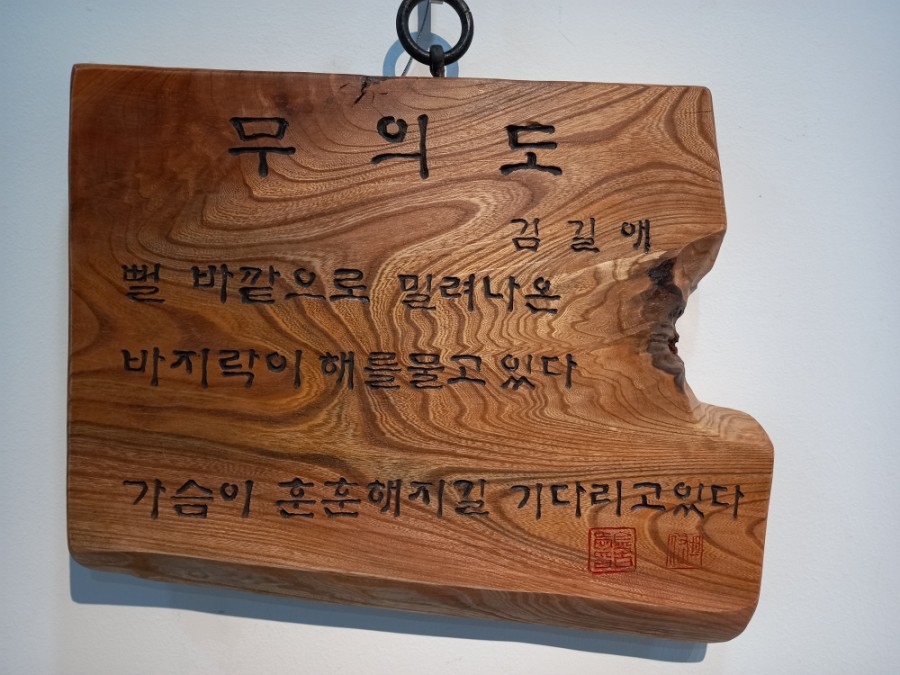 무의도
김길애
뻘 바깥으로 밀려나온
바지락이 해를물고있다
가슴이 훈훈해지길 기다리고있다